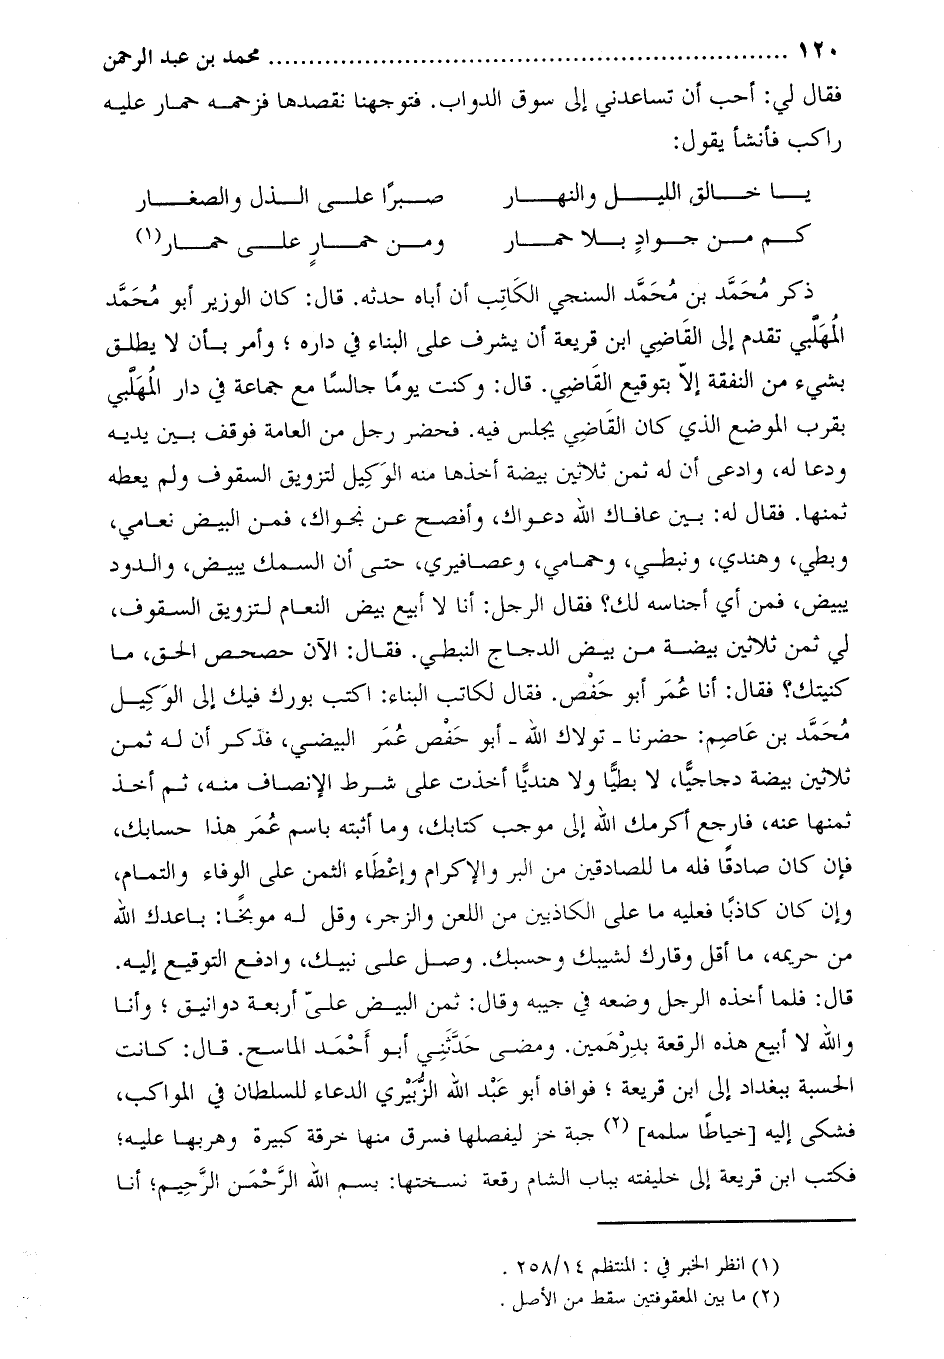 ١٢٠ ................................................................. محمد بن عبد الرحمن
فقال لي: أحب أن تساعدني إلى سوق الدواب. فتوجهنا نقصدها فزحمه حمار عليه
راكب فأنشأ يقول:
يا خالق الليل والنهار صبرًا على الذل والصغار
كم من جوادٍ بلا حمار ومن حمارٍ على حمار(١)
ذكر مُحَمَّد بن مُحَمَّد السنجي الكَاتِب أن أباه حدثه. قال: كان الوزير أبو مُحَمَّد
المُهَلَّبي تقدم إلى القَاضِي ابن قريعة أن يشرف على البناء في داره ؛ وأمر بأن لا يطلق
بشيء من النفقة إلاّ بتوقيع القَاضِي. قال: وكنت يومًا جالسًا مع جماعة في دار المُهَلَّبي
بقرب الموضع الذي كان القَاضِي يجلس فيه. فحضر رجل من العامة فوقف بين يديه
ودعا له، وادعى أن له ثمن ثلاثين بيضة أخذها منه الوَكِيل لتزويق السقوف ولم يعطه
ثمنها. فقال له: بين عافاك الله دعواك، وأفصح عن نجواك، فمن البيض نعامي،
وبطي، وهندي، ونبطي، وحمامي، وعصافيري، حتى أن السمك يبيض، والدود
يبيض، فمن أي أجناسه لك؟ فقال الرجل: أنا لا أبيع بيض النعام لتزويق السقوف،
لي ثمن ثلاثين بيضة من بيض الدجاج النبطي. فقال: الآن حصحص الحق، ما
كنيتك؟ فقال: أنا عُمَر أبو حَفْص. فقال لكاتب البناء: اكتب بورك فيك إلى الوَكِيل
مُحَمَّد بن عَاصِم: حضرنا ـ تولاك الله ـ أبو حَفْص عُمَر البيضي، فذكر أن له ثمن
ثلاثين بيضة دجاجيًّا، لا بطيًّا ولا هنديًّا أخذت على شرط الإنصاف منه، ثم أخذ
ثمنها عنه، فارجع أكرمك الله إلى موجب كتابك، وما أثبته باسم عُمَر هذا حسابك،
فإن كان صادقًا فله ما للصادقين من البر والإكرام وإعْطَاء الثمن على الوفاء والتمام،
وإن كان كاذبًا فعليه ما على الكاذبين من اللعن والزجر، وقل له موبخًا: باعدك الله
من حريمه، ما أقل وقارك لشيبك وحسبك. وصل على نبيك، وادفع التوقيع إليه.
قال: فلما أخذه الرجل وضعه في جيبه وقال: ثمن البيض عليّ أربعة دوانيق ؛ وأنا
والله لا أبيع هذه الرقعة بدِرْهَمين. ومضى حَدَّثَنِي أبو أَحْمَد الماسح. قال: كانت
الحسبة ببغداد إلى ابن قريعة ؛ فوافاه أبو عَبْد الله الزُّبَيْري الدعاء للسلطان في المواكب،
فشكى إليه [خياطًا سلمه] (٢) جبة خز ليفصلها فسرق منها خرقة كبيرة وهربها عليه؛
فكتب ابن قريعة إلى خليفته بباب الشام رقعة نسختها: بسم الله الرَّحْمَن الرَّحِيم؛ أنا
(١) انظر الخبر في : المنتظم ٢٥٨/١٤ .
(٢) ما بين المعقوفتين سقط من الأصل .